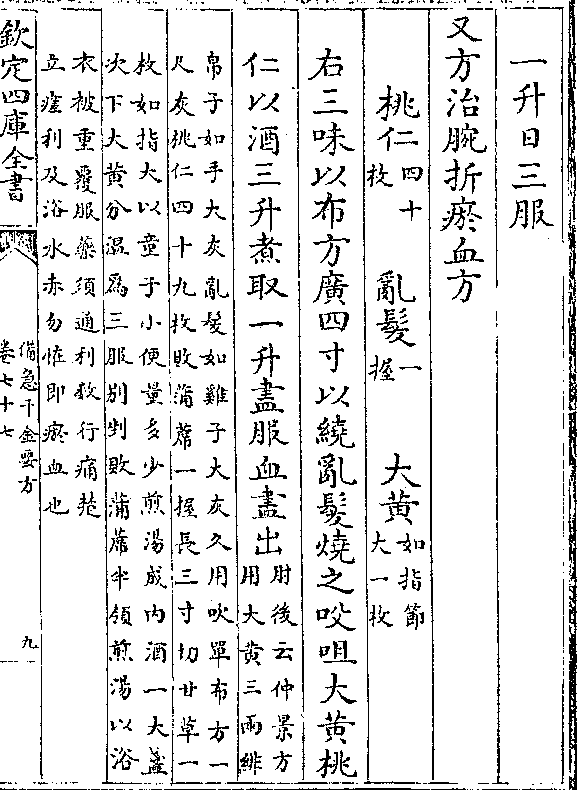 一升日三服
又方治腕折瘀血方
桃仁四十枚　亂髮一握　大黄如指節大一枚
右三味以布方廣四寸以繞亂髮燒之㕮咀大黄桃
仁以酒三升煮取一升盡服血盡出肘後云仲景方用大黄三兩緋
帛子如手大灰亂髮如雞子大灰久用吹單布方一
尺灰桃仁四十九枚敗蒲蓆一握長三寸切甘草一
枚如指大以童子小便量多少煎湯成内酒一大盞
次下大黄分温爲三服别剉敗蒲蓆半領煎湯以浴
衣被重覆服藥須通利數行痛楚
立瘥利及浴水赤勿怪即瘀血也
欽定四庫全書
備急千金要方
卷七十七
九